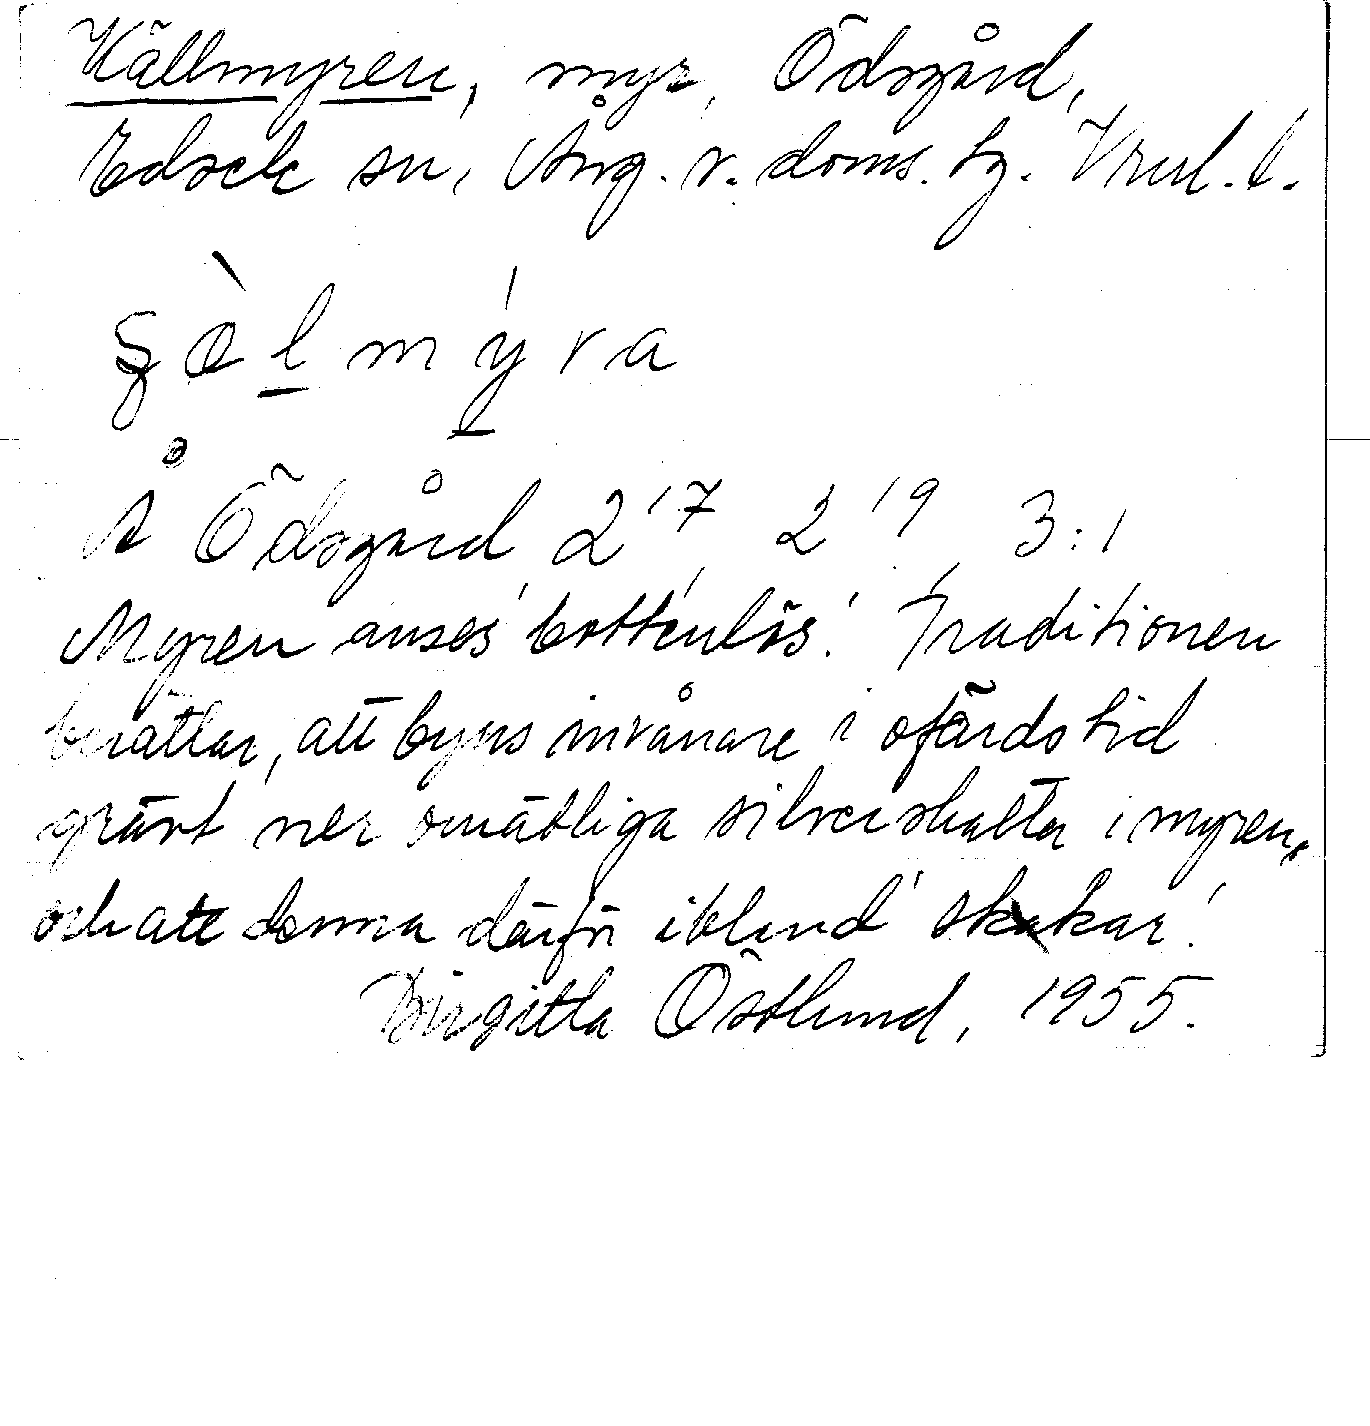 Källmyren, myr, Ödsgård,
Edsele sn, Ång. v. doms. tg. Vrnl. l.
mýra
Å Ödsgård 2'7 2'9 3:1
Myren anses 'bottenlös'. Traditionen
berättar, att byns invånare i ofärdstid
grävt ner omätliga silverskatter i myren,
och att denna därför ibland 'skakar'.
Birgitta Östlund, 1955.